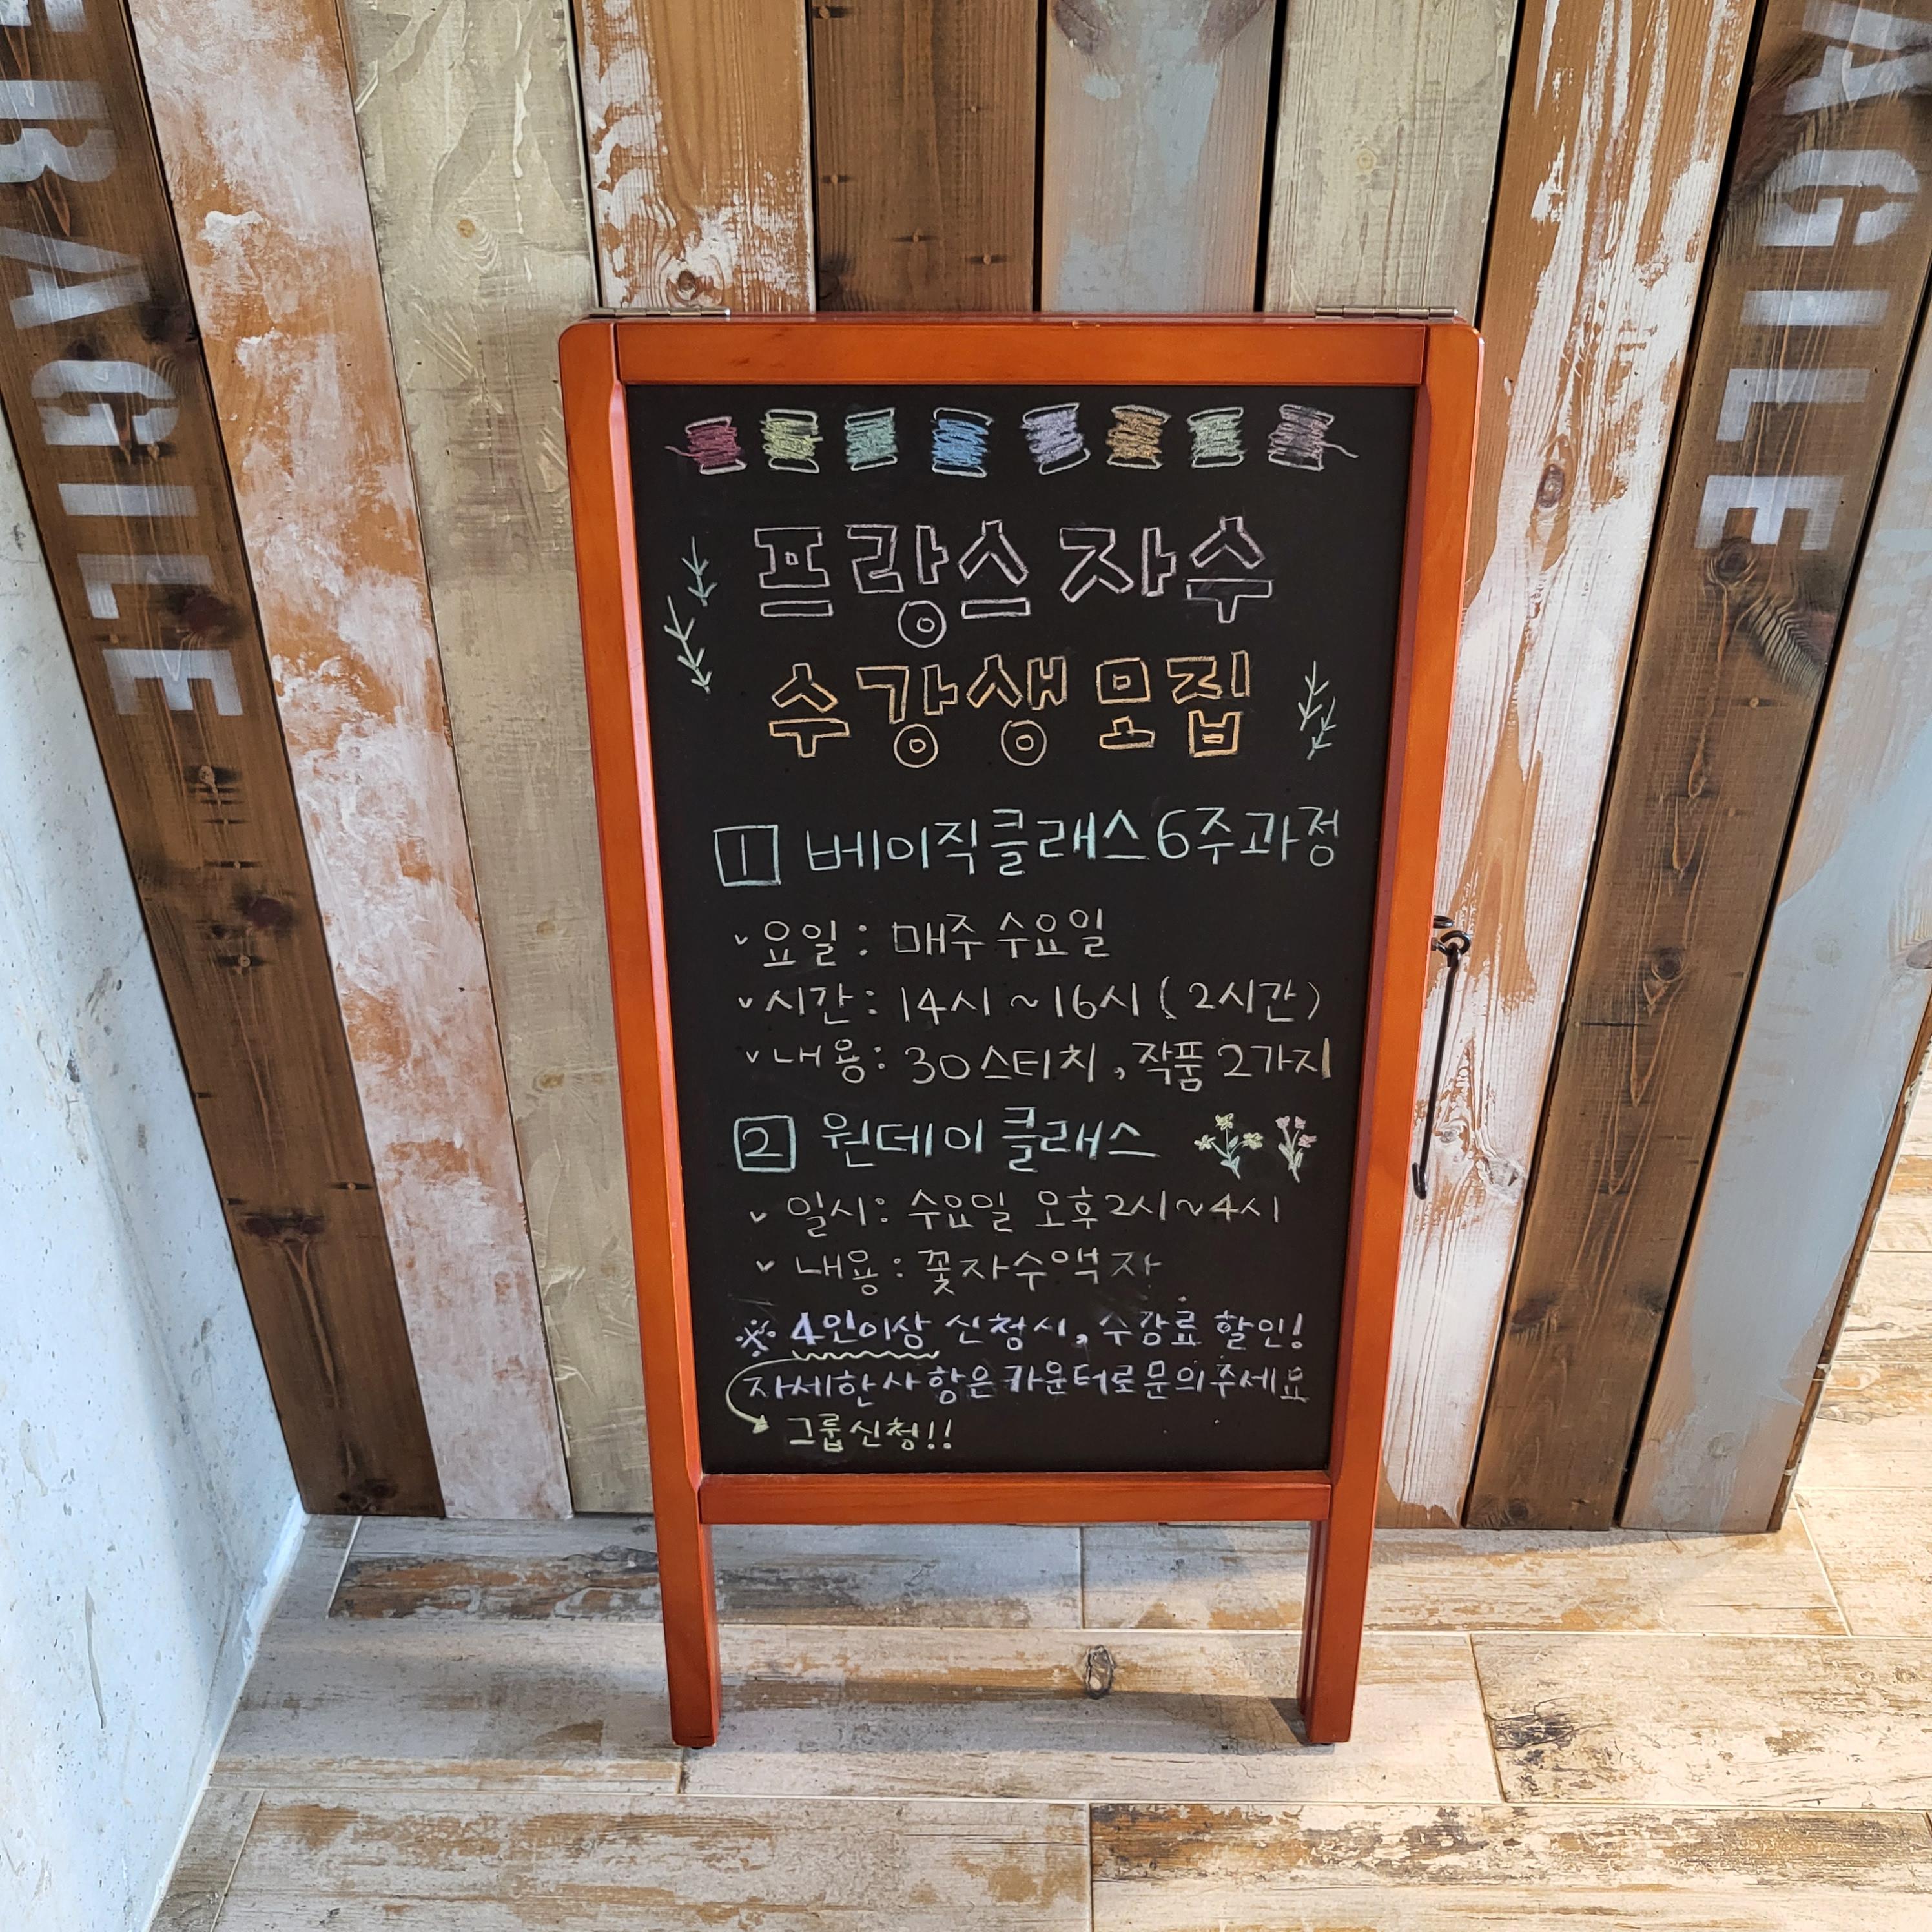 FRAGILE
FRAGILE
프랑스 자수
수강생 모집
1 베이직클래스 6주과정
요일 : 매주 수요일
시간 : 14시 ~ 16시 ( 2시간 )
내용 : 30스티치, 작품 2가지
2 원데이 클래스
일시 : 수요일 오후 2시 ~ 4시
내용 : 꽃자수액자
※ 4인이상 신청시, 수강료 할인!
자세한사항은 카운터로 문의주세요
그룹신청!!